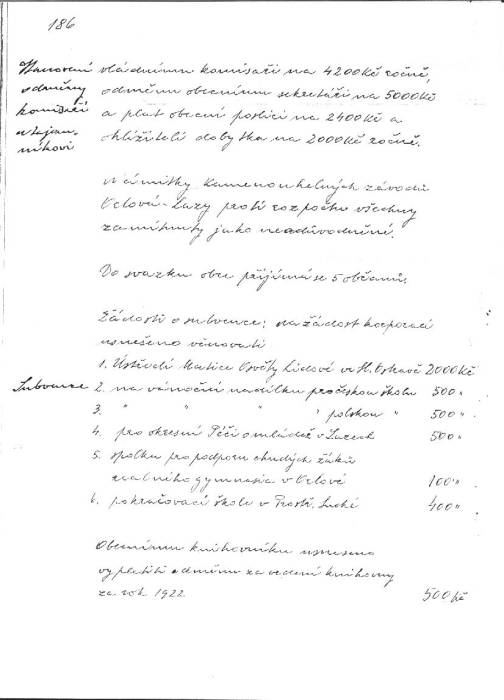 186
Stanovení vládnímu komisaři na 4200Kč ročně,
odměny odměnu obecnímu sekretáři na 5000Kč
komisaři a plat obecní poslici na 2400Kč a
a tajem- ohlížiteli dobytka na 2000Kč ročně.
níkovi
Námitky kamenouhelných závodů
Orlová-Lazy proti rozpočtu všechny
zamítnuty jako neodůvodněné.
Do svazku obce přijímá se 5 občanů.
Žádosti o subvence: na žádost korporací
usneseno věnovati
1. Ústředí Matice Osvěty Lidové ve Sl. Ostravě 2000Kč
Subvence 2. na vánoční nadílku pro českou školu 500 "
3. " " " " polskou " 500 "
4. pro okresní Péči o mládež v Lazech 500 "
5. spolku pro podporu chudých žáků
realného gymnasia v Orlové 100 "
6. pokračovací škole v Prostř. Suché 400 "
Obecnímu knihovníku usneseno
vyplatiti odměnu za vedení knihovny
za rok 1922 500 Kč